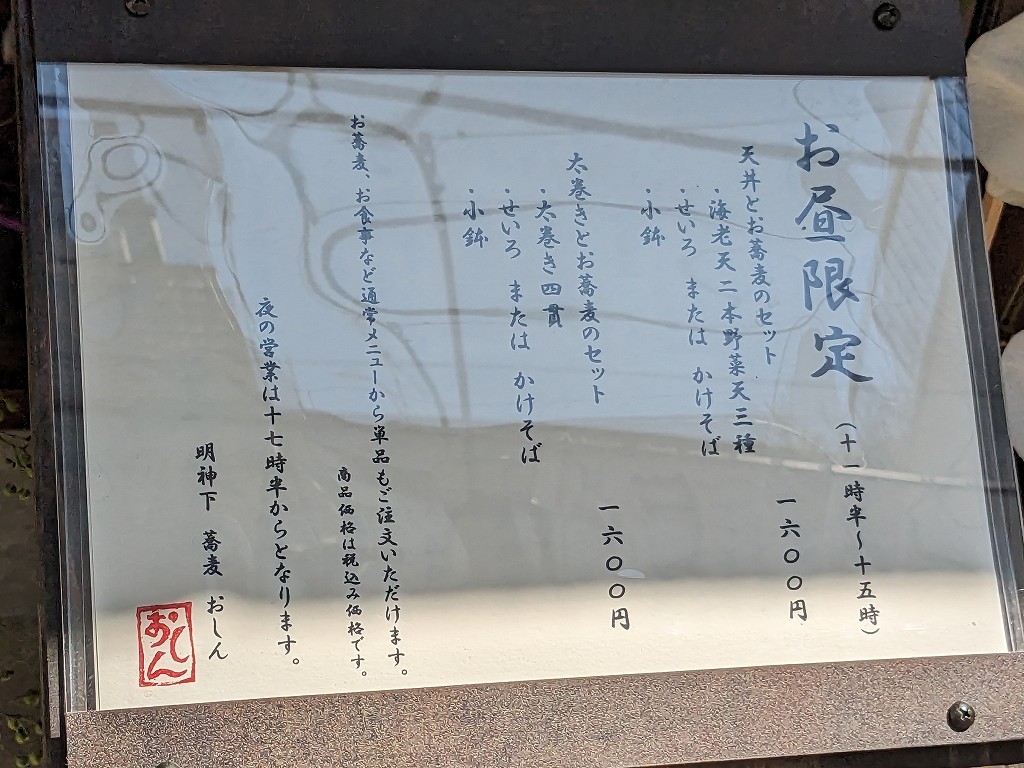 お昼限定（十一時半～十五時）
天丼とお蕎麦のセット　一六〇〇円
・海老天二本野菜天三種
・せいろ　または　かけそば
・小鉢
太巻きとお蕎麦のセット　一六〇〇円
・太巻き四貫
・せいろ　または　かけそば
・小鉢
お蕎麦、お食事など通常メニューから単品もご注文いただけます。
商品価格は税込み価格です。
夜の営業は十七時半からとなります。
明神下　蕎麦　おしん
おしん